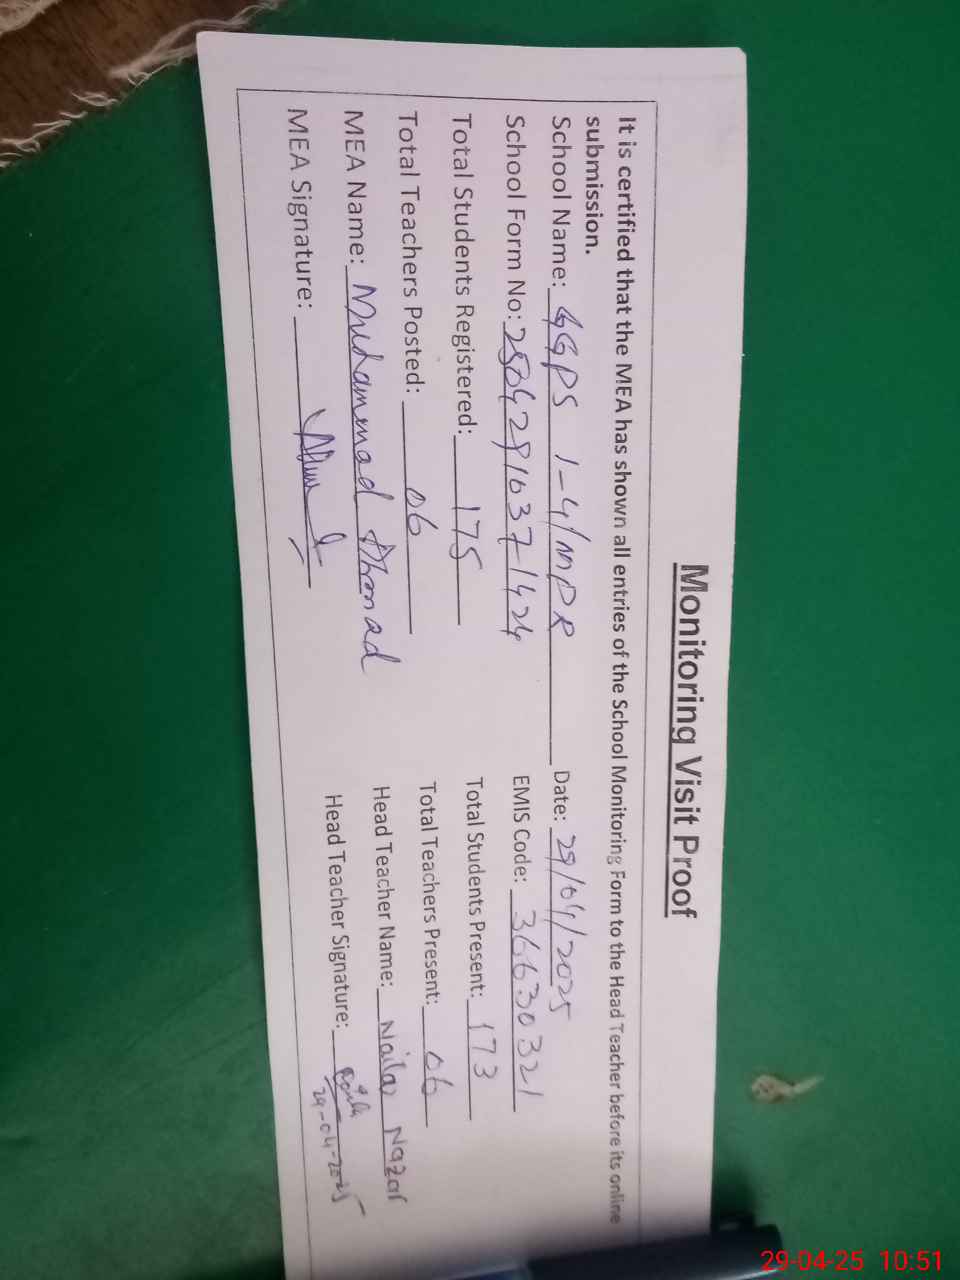 Monitoring Visit Proof
It is certified that the MEA has shown all entries of the School Monitoring Form to the Head Teacher before its online
submission.
School Name: GGPS 1-4/MPR Date: 29/04/2025
School Form No: 25042910371424 EMIS Code: 36630321
Total Students Registered: 175 Total Students Present: 173
Total Teachers Posted: 06 Total Teachers Present: 06
MEA Name: Muhammad Ahmad Head Teacher Name: Naila Nazar
MEA Signature: Head Teacher Signature:
29-04-2025
29-04-25 10:51